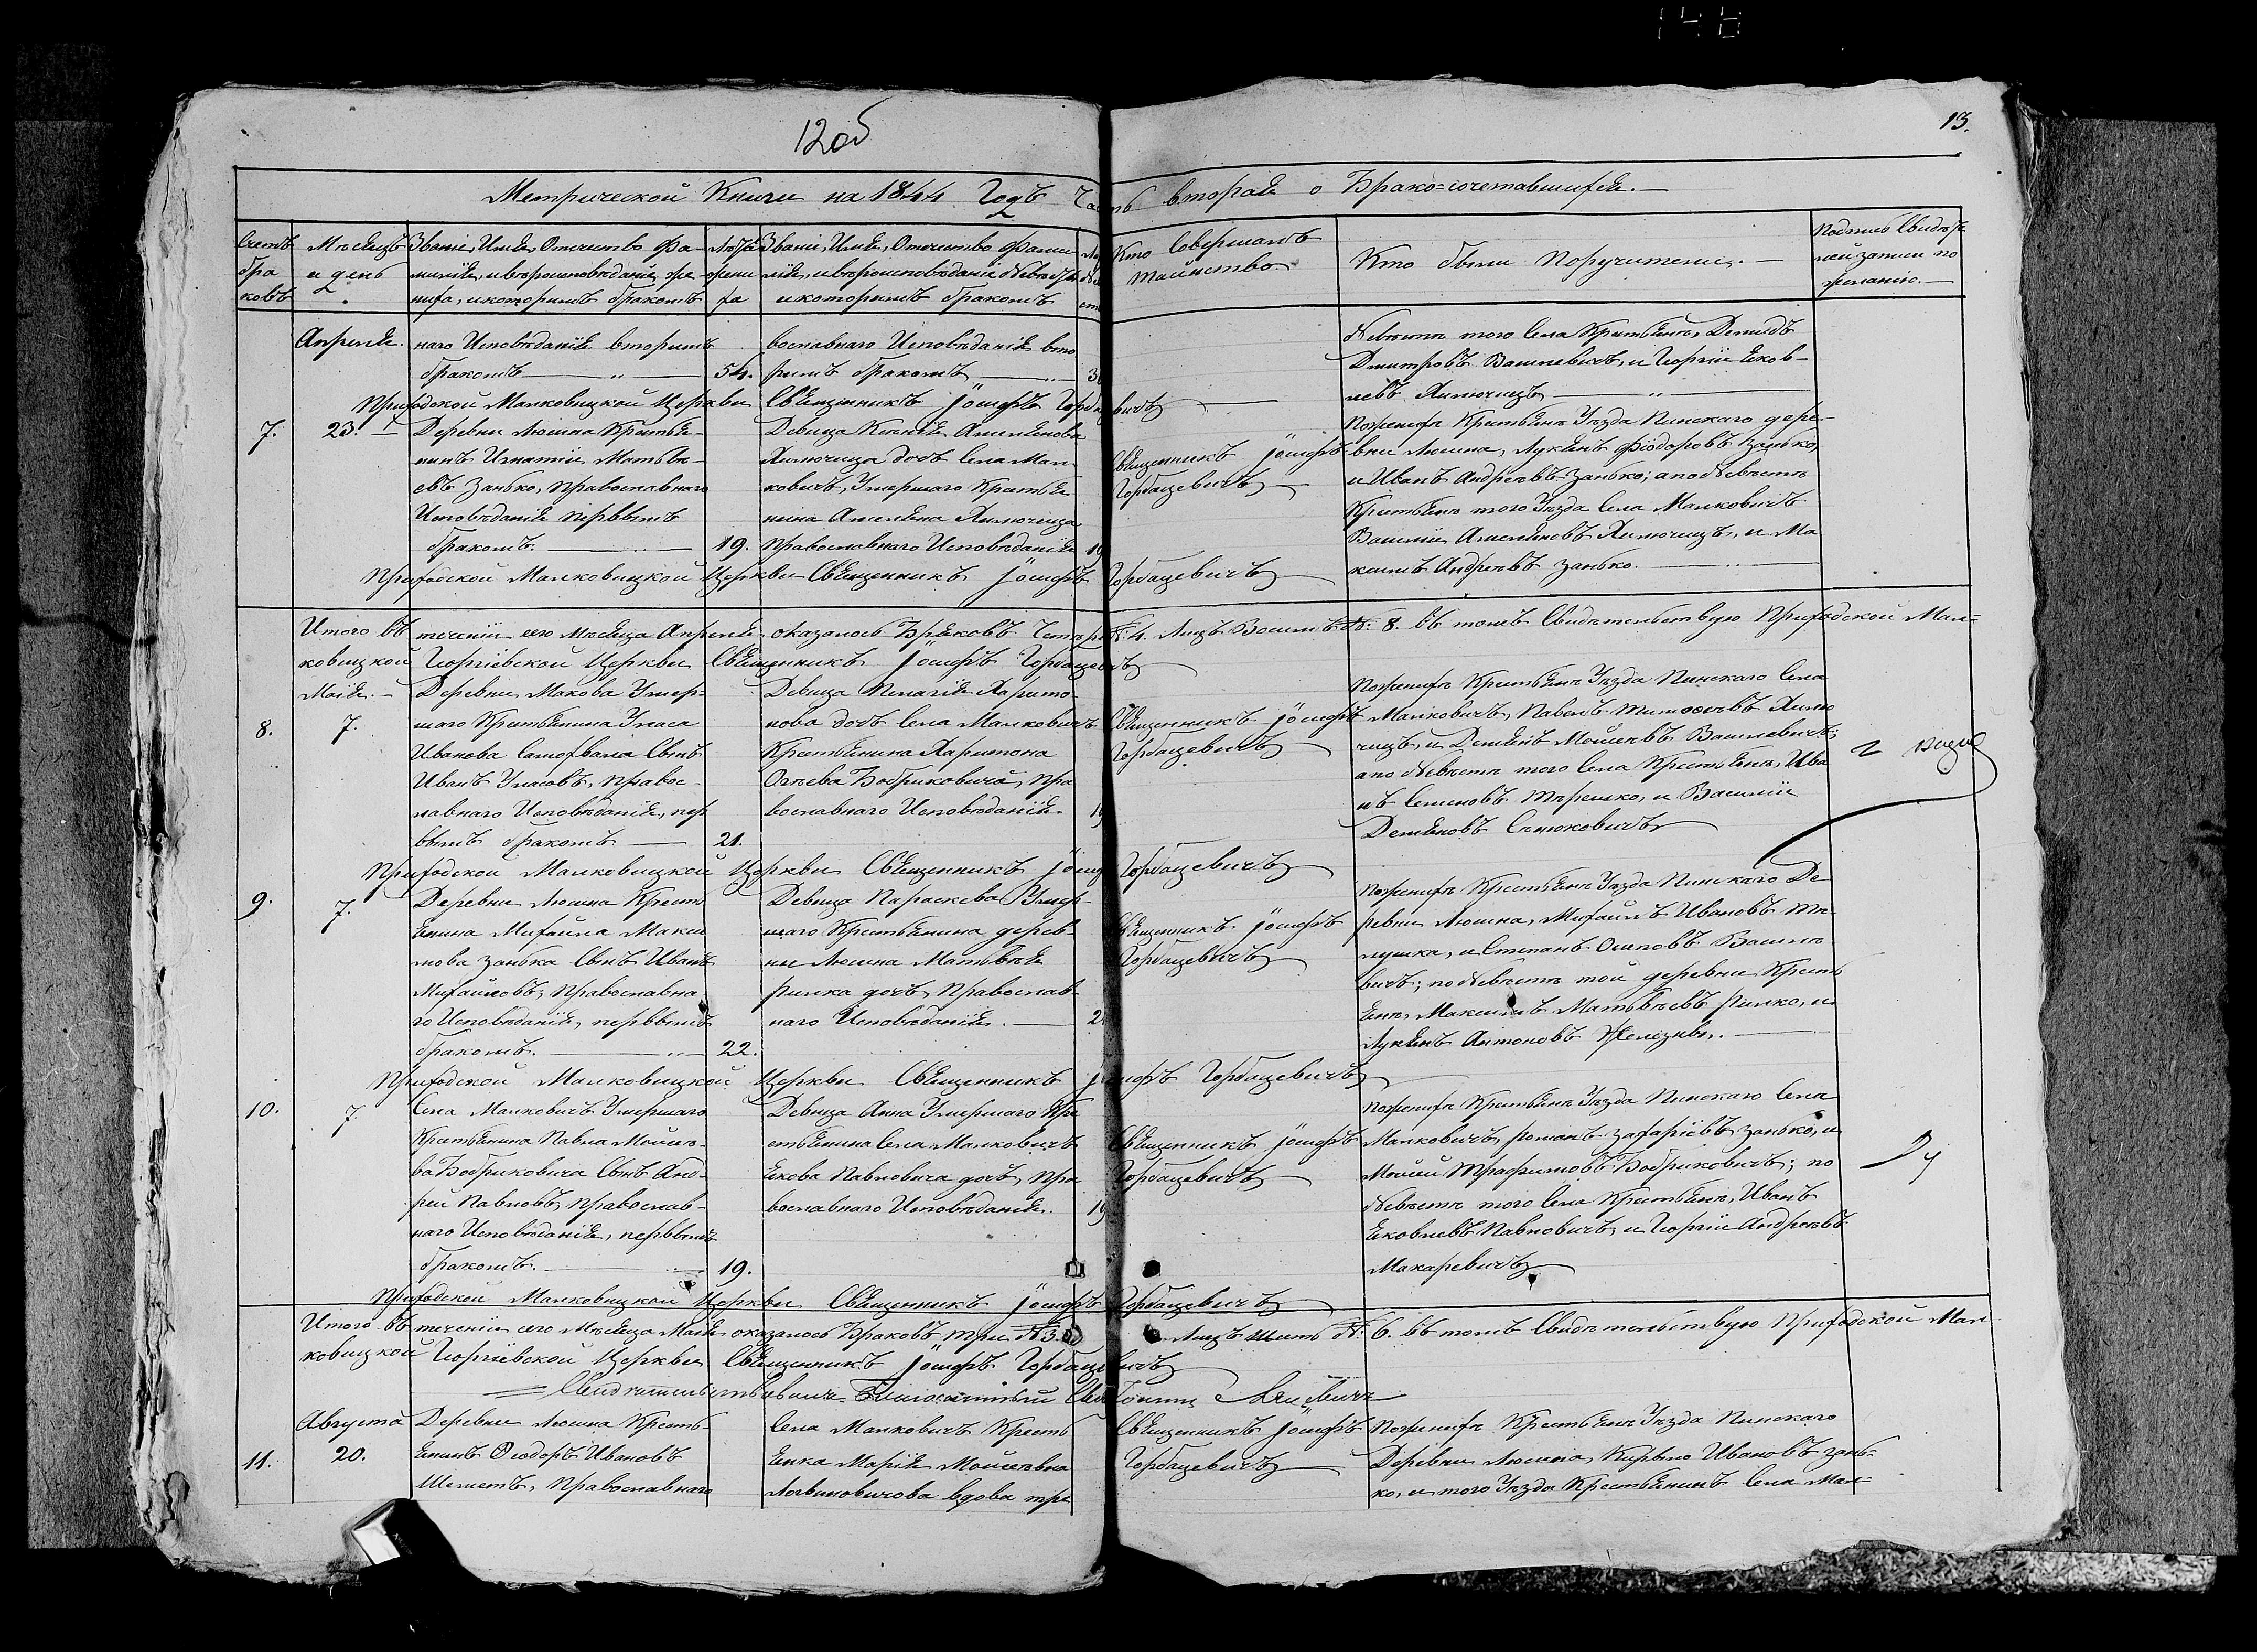 148
12об
13.
Метрической Книги на 1844 Годъ Часть вторая о Брако=сочетавшихся.
Счетъ браковъ
Мѣсяцъ и день
Званіе, Имя, Отечество Фамилія, и вѣроисповѣданіе жениха, и которымъ бракомъ
Лѣта жениха
Званіе, Имя, Отечество Фамилія, и вѣроисповѣданіе Невѣсты и которымъ бракомъ
Кто Совершалъ таинство
Кто были Поручители.
Подпись Свидѣтелей записи по желанію.
Апреля.
наго Исповѣданія вторымъ
бракомъ 54.
вославнаго Исповѣданія вто
рымъ бракомъ
Невѣстѣ того Села Крестьяне, Демидъ
Дмитровъ Василевичъ, и Георгіи Яков-
левъ Химочицъ
Приходской Малковицкой Церкви Священникъ Іосифъ Горбацевичъ
7.
23.
Деревни Люсина Крестья-
нинъ Игнатіи Матвѣ-
евъ Занько, Православнаго
Исповѣданія первымъ
бракомъ. 19.
Девица Амеляновa
Химочица дочь Села Мал
ковичъ, Умершаго Крестья
нина Амеляна Химочица
Православнаго Исповѣданія 19
Священникъ Іосифъ
Горбацевичъ
По женихѣ Крестьяне Уѣзда Пинскаго дере-
вни Люсина, Лукянъ Фіодоровъ Занько,
и Иванъ Андреевъ Занько; а по Невѣстѣ
Крестьяне того Уѣзда Села Малковичъ
Василіи Амеляновъ Химочицъ, и Ма
ксимъ Андреевъ Занько.
Приходской Малковицкой Церкви Священникъ Іосифъ Горбацевичъ
Итого въ теченіи сего Мѣсяца Апреля оказалось Браковъ Четыре №. 4. Лицъ Восемь №. 8. въ томъ Свидѣтельствую Приходской Мал=
ковицкой Георгіевской Церкви Священникъ Іосифъ Горбацевичъ
Маія.
8.
7.
Деревни Макова Умер-
шаго Крестьянина Уласа
Иванова Самохвала Сынъ
Иванъ Уласовъ, Правос-
лавнаго Исповѣданія, пер
вымъ бракомъ 21.
Девица Пелагія Харито-
нова дочь Села Малковичъ
Крестьянина Харитона
Бобриковича, Пра
вославнаго Исповѣданія. 19
Священникъ Іосифъ
Горбацевичъ
По женихѣ Крестьяне Уѣзда Пинскаго Села
Малковичъ, Павелъ Тимоѳеевъ Химо
чицъ, и Демянъ Мойсеевъ Василевичъ;
а по Невѣстѣ того Села Крестьяне, Ива
нъ Семеновъ Терешко, и Василіи
Демяновъ Сенюковичъ
Приходской Малковицкой Церкви Священникъ Іосифъ Горбацевичъ
9.
7.
Деревни Люсина Кресть
янина Михайла Макси
мова Занька Сынъ Иванъ
Михайловъ, Православна
го Исповѣданія, первымъ
бракомъ. 22.
Девица Параскева Умер-
шаго Крестьянина дерев-
ни Люсина Матвѣя
Рылка дочь, Православ-
наго Исповѣданія.
Священникъ Іосифъ
Горбацевичъ
По женихѣ Крестьяне Уѣзда Пинскаго Де
ревни Люсина, Михайлъ Ивановъ
и Степанъ Осиповъ Василе
вичъ; по Невѣстѣ той деревни Кресть
яне, Максимъ Матвѣевъ Рылко, и
Лукянъ Антоновъ
Приходской Малковицкой Церкви Священникъ Іосифъ Горбацевичъ
10.
7.
Села Малковичъ Умершаго
Крестьянина Павла Мойсее-
ва Бобриковича Сынъ Анд-
рей Павловъ, Православ-
наго Исповѣданія, первымъ
бракомъ. 19.
Девица Анна Умершаго Кре
стьянина Села Малковичъ
Якова Павловича дочь, Пра
вославнаго Исповѣданія. 19
Священникъ Іосифъ
Горбацевичъ
По женихѣ Крестьяне Уѣзда Пинскаго Села
Малковичъ, Романъ Захаріевъ Занько, и
Мойсей Трофимовъ Бобриковичъ; по
Невѣстѣ того Села Крестьяне, Иванъ
Яковлевъ Павловичъ, и Георгіи Андреевъ
Макаревичъ
Приходской Малковицкой Церкви Священникъ Іосифъ Горбацевичъ
Итого въ теченіи сего Мѣсяца Маія оказалось Браковъ три №3. Лицъ шесть №. 6. въ томъ Свидѣтельствую Приходской Мал-
ковицкой Георгіевской Церкви Священникъ Іосифъ Горбацевичъ
11.
Августа
20.
Деревни Люсина Кресть-
янинъ Ѳеодоръ Ивановъ
Шеметъ, Православнаго
Села Малковичъ Кресть
янка Марія Мойсеевна
Логвиновичова вдова тре
Священникъ Іосифъ
Горбацевичъ
По женихѣ Крестьяне Уѣзда Пинскаго
Деревни Люсина, Кирыло Ивановъ Зань-
ко, и того Уѣзда Крестьянинъ Села Мал=